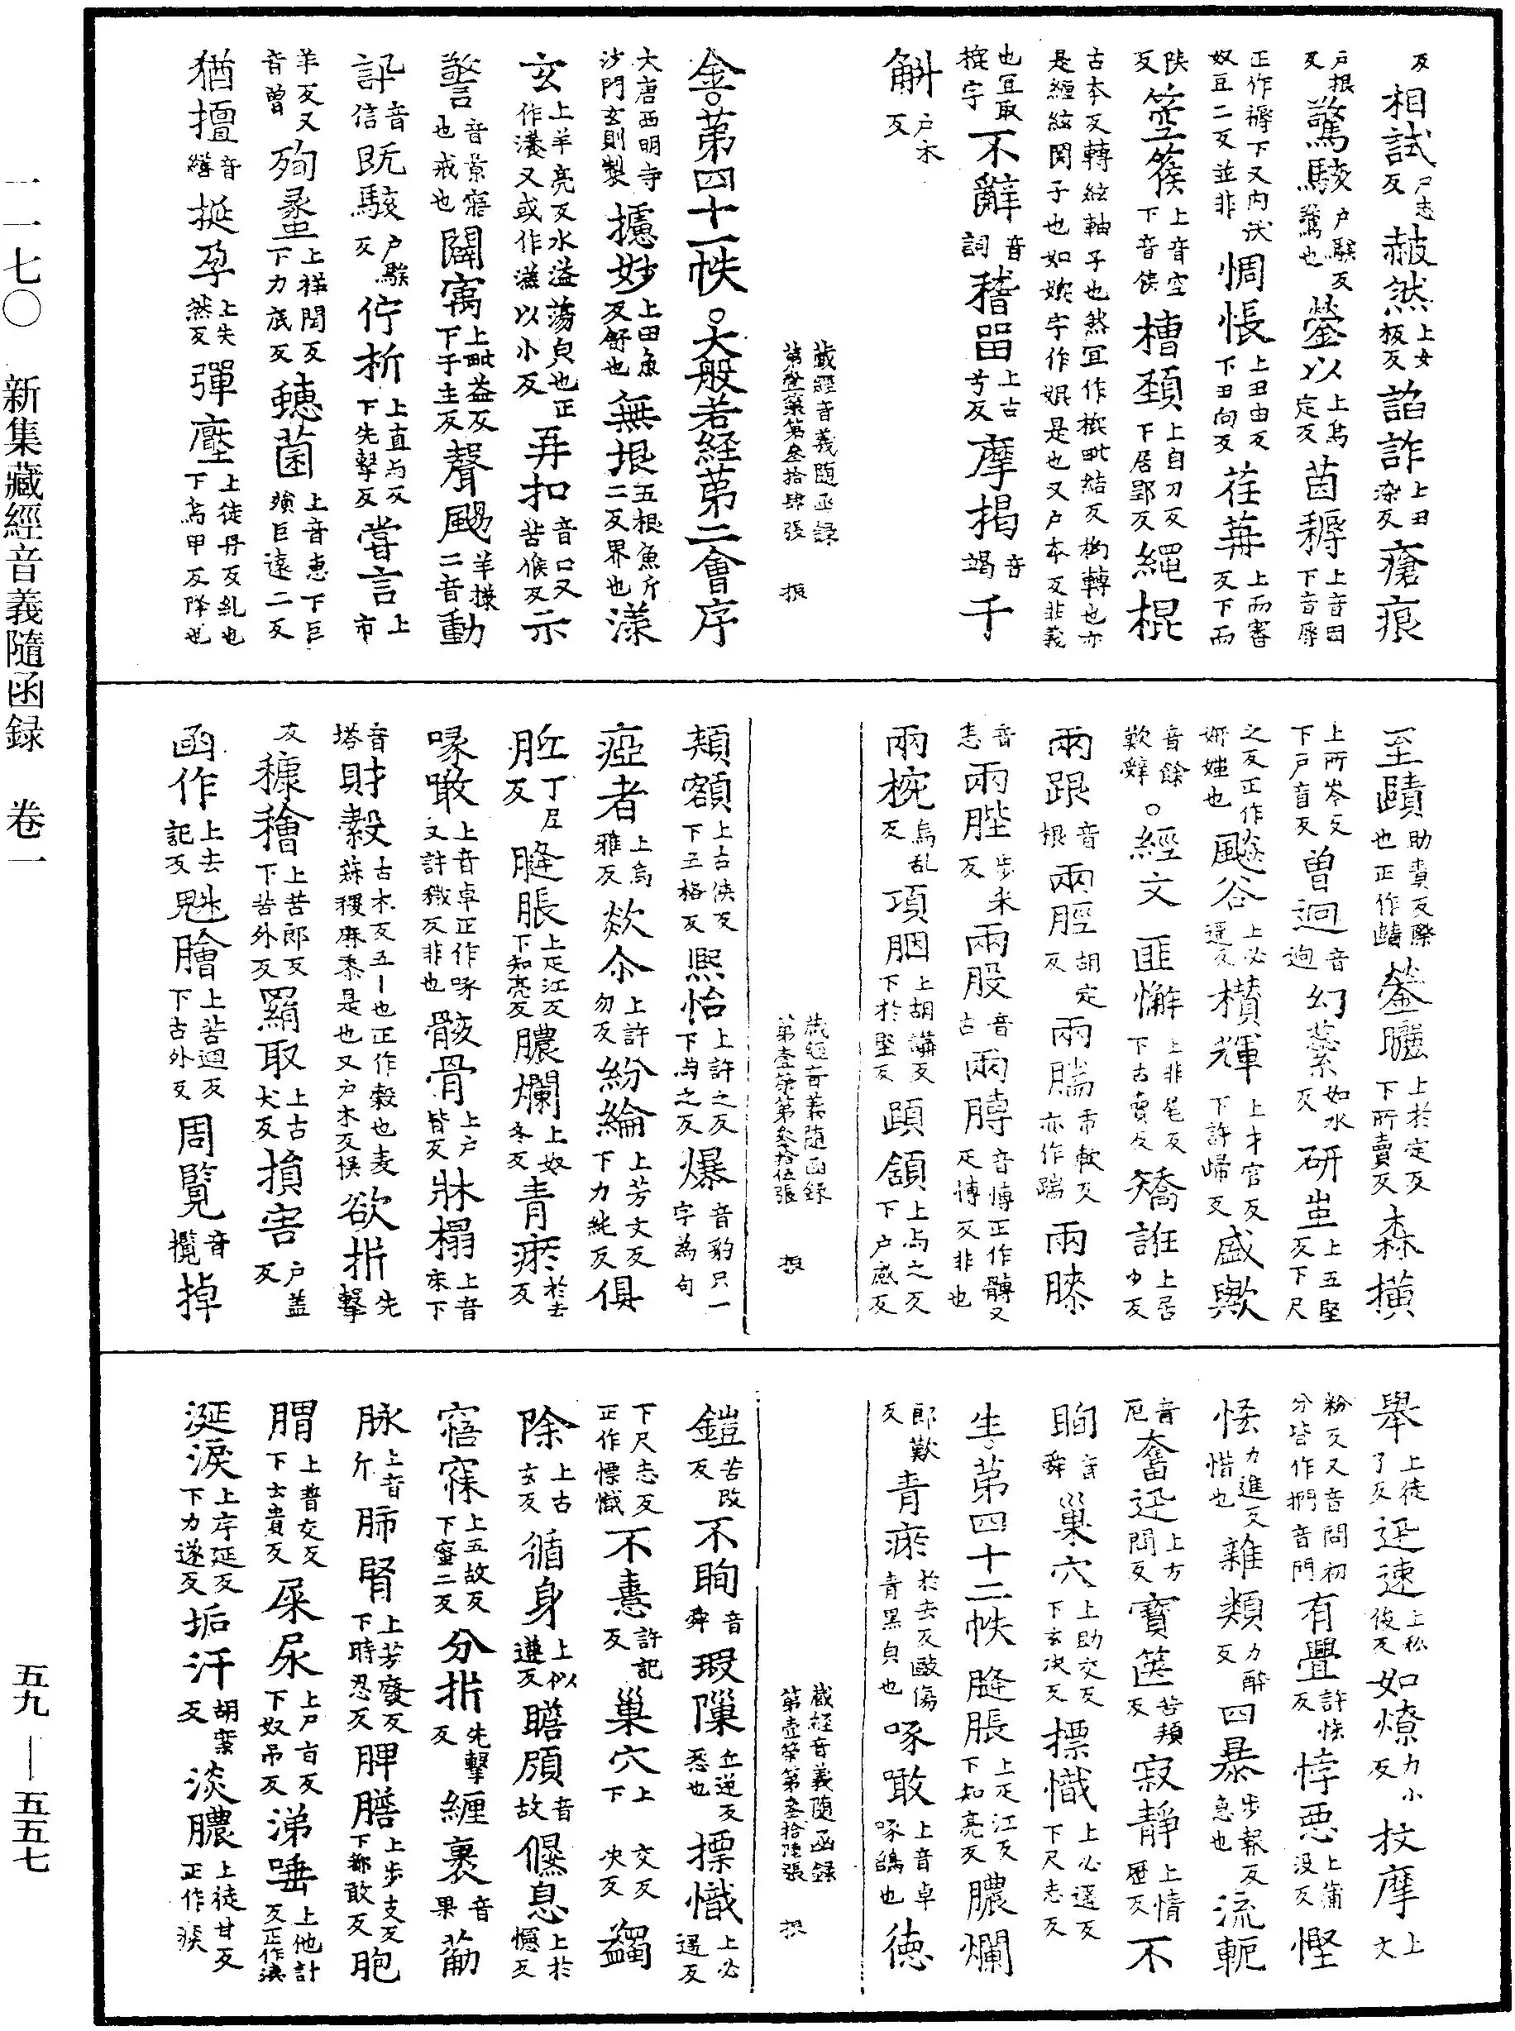 一一七〇　新集藏經音義隨函録　卷一
五九—五五七
反相試尸志反赧然上女板反諂詐上田染反瘡痕
户根反驚駭户騃反驚也鎣以上烏定反茵耨上音因下音辱
正作褥下又内沃奴豆二反並非惆悵上丑由反下丑向反荏苒上而審反下而
陕反箜篌上音空下音侯槽頚上自刀反下居郢反繩棍
古本反轉絃軸子也然冝作棙毗結反拗轉也亦
是纏絃関子也如㛰字作婫是也又户本反非義
也冝取棙字不辭音詞稽留上古兮反摩揭音竭千
斛户木反
藏經音義隨函録
第壹策第叁拾肆張
金。第四十一帙。大般若經第二會序
大唐西明寺沙門玄則製攄妙上田魚反舒也無垠五根魚斤二反界也漾
玄上羊亮反水溢蕩皃也正作瀁又或作㵝以小反再扣音口又苦候反示
警音景寤也戒也闢㝢上毗益反下于主反聲颺羊㨾二音動
訙音信既駭户騃反佇析上直与反下先擊反甞言上市
羊反又音曽殉蠡上祥閏反下力底反蟪菌上音惠下巨殞巨遠二反
猶擅音繕挻孕上失羶反彈壓上徒丹反糺也下烏甲反降也
至賾助責反賾也正作賾鎣曬上於定反下所賣反森横
上所岑反下户盲反曽迥音逈幻蘂如水反研蚩上五堅反下尺
之反正作妍媸也飈谷上必遥反欑輝上才官反下許歸反盛歟
音餘歎辤。經文匪懈上非尾反下古賣反矯誑上居少反
兩跟音根兩脛胡定反兩腨市軟反亦作踹兩膝
音悉兩髀步米反兩股音古兩膊音愽正作髆又疋愽反非也
兩捥烏乱反項胭上胡講反下於堅反頤頷上与之反下户感反
藏經音義隨函録
第壹策第叁拾伍張
頬額上古俠反下五格反熙怡上許之反下与之反爆音豹只一字為句
瘂者上烏雅反欻尒上許勿反紛綸上芳文反下力純反俱
胝丁尼反膖脹上疋江反下知亮反膿爛上奴冬反青瘀於去反
啄噉上音卓正作啄又許穢反非也骸骨上户皆反牀榻上音床下
音塔財縠古木反五—也正作穀也麦蘇稷麻黍是也又户木反悮欲㭊先擊
反穅糩上苦郎反下苦外反羂取上古犬反損害户盖反
函作上去記反魁膾上苦迴反下古外反周覧音攬掉
舉上徒了反迅速上私俊反如燎力小反抆摩上文
粉反又音問初分皆作捫音門有釁許㤥反悖惡上蒲没反慳
悋力進反惜也雜類力醉反四暴步報反急也流軛
音厄奮迅上方問反寶篋苦頬反寂靜上情歷反不
眴音舜巢穴上助交反下玄决反摽幟上必遥反下尺志反
生。第四十二帙膖脹上疋江反下知亮反膿爛
郎歎反青瘀於去反毆傷青黒皃也啄噉上音卓啄鴿也徳
藏經音義隨函録
第壹策第叁拾陸張
鎧苦改反不眴音舜瑕隟丘逆反悉也摽幟上必遥反
下尺志反正作㯹幟不憙許記反巢穴上交反下决反蠲
除上古玄反循身上似遵反瞻頋音故偃息上於憶反
寤寐上五故反下蜜二反分㭊先擊反纏裹音果䈥
脉上音斤肺腎上芳廢反下時忍反脾膽上步支反下都敢反胞
𦝩上普交反下士貴反屎尿上尸旨反下奴吊反涕唾上他計反正作洟
涎淚上序延反下力遂反垢汗胡案反淡膿上徒甘反正作痰